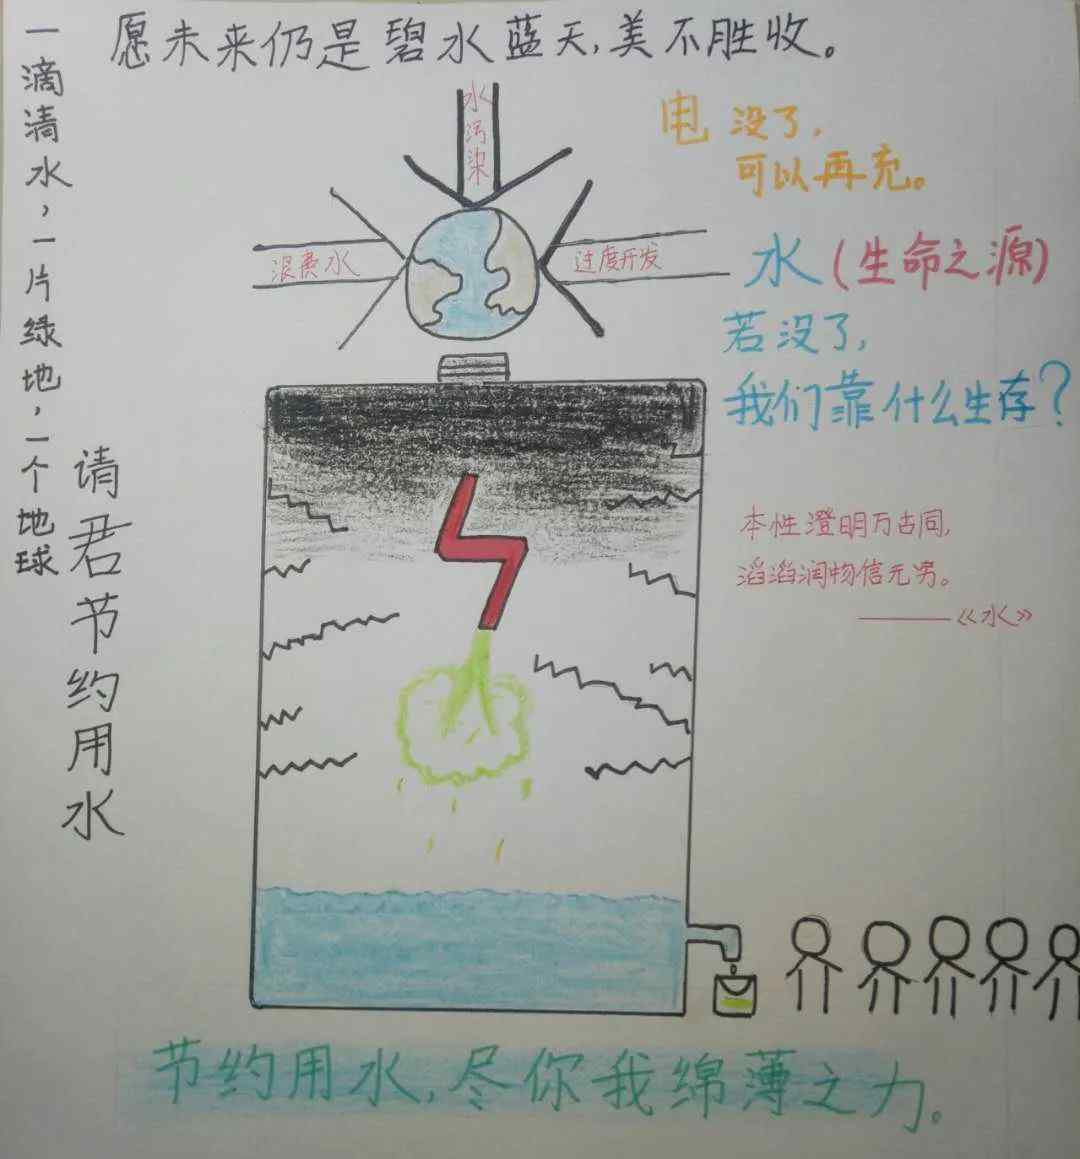 愿未来仍是碧水蓝天,美不胜收。
一滴清水,一片绿地,一个地球
请君节约用水
水污染
浪费水
过度开发
电 没了,
可以再充。
水(生命之源)
若没了,
我们靠什么生存?
本性澄明万古同,
滔滔润物信无穷。
——《水》
节约用水,尽你我绵薄之力。